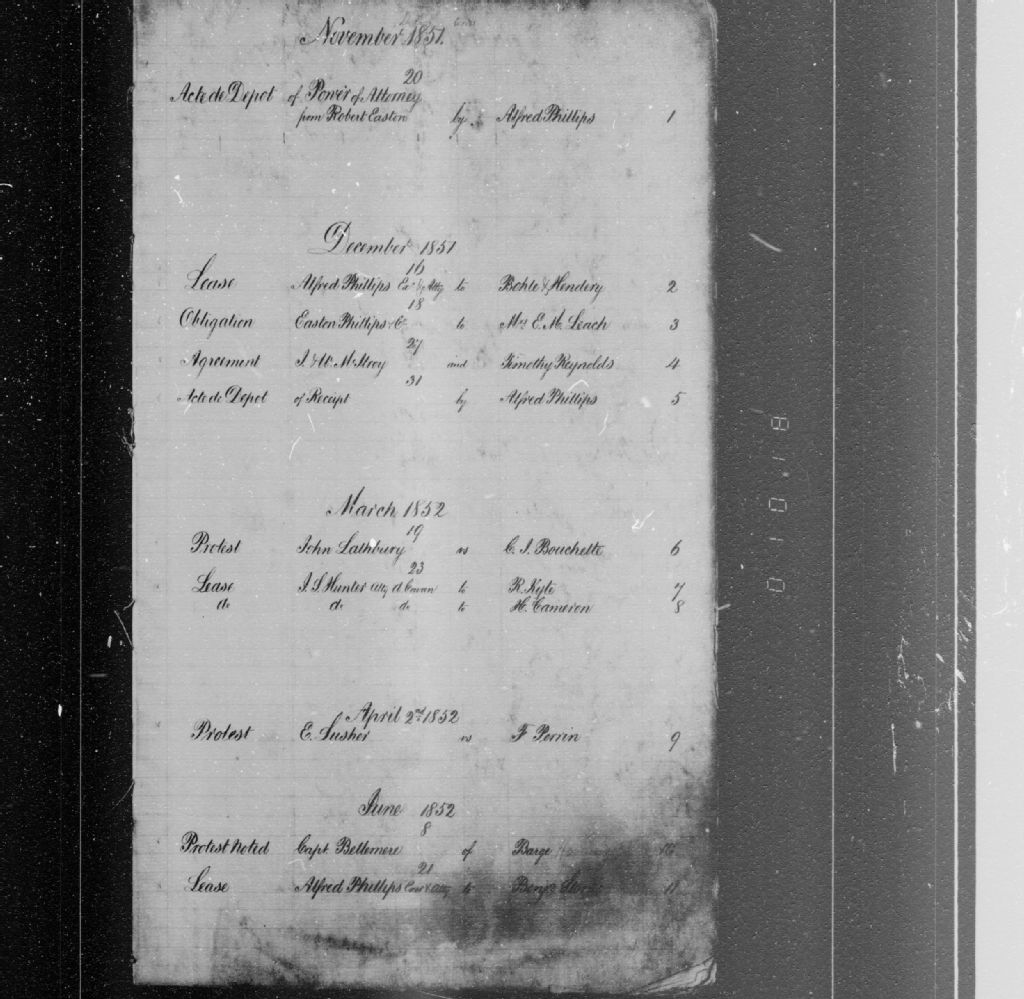 November 1851.
20
Acte de Depot of Power of Attorney
from Robert Easton by Alfred Phillips 1
December 1851
16
Lease Alfred Phillips Exr & Atty to Bohle & Hendery 2
18
Obligation Easton Phillips & Co to Mrs E. M. Leach 3
27
Agreement J. & W. McIlroy and Timothy Reynolds 4
31
Acte de Depot of Receipt by Alfred Phillips 5
March 1852
19
Protest John Lathbury vs C. J. Bouchette 6
23
Lease J. S. Hunter Atty A. Cowan to R. Kyte 7
do do do to H. Cameron 8
April 2nd 1852
Protest E. Lusher vs F. Perrin 9
June 1852
8
Protest Noted Capt. Bellemere of Barge 10
21
Lease Alfred Phillips Exor & Atty to Benjn 11
01018